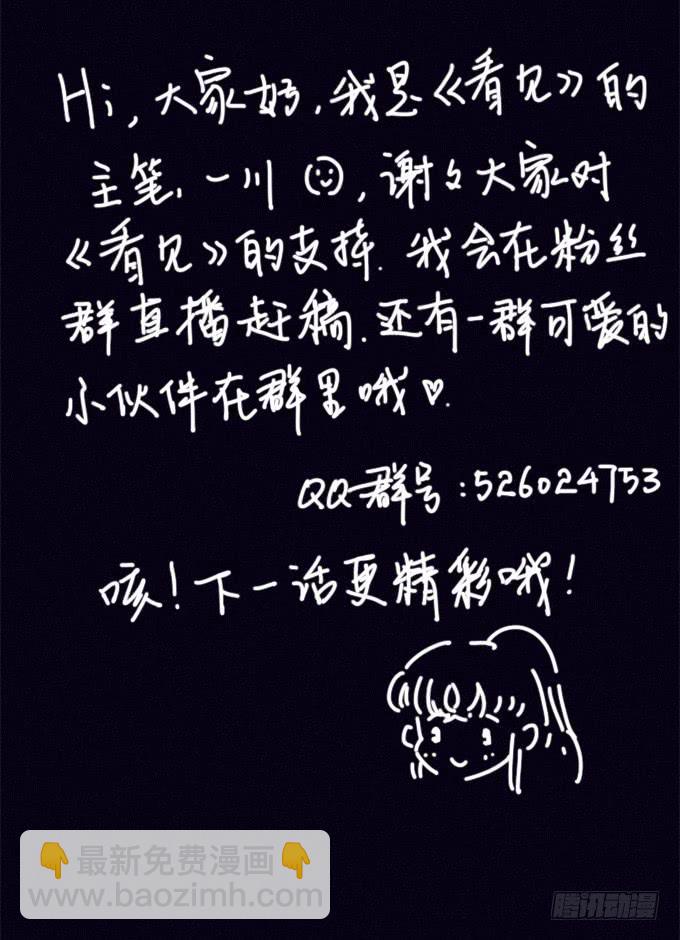 Hi, 大家好, 我是《看见》的
主笔, 一川 , 谢々大家对
《看见》的支持. 我会在粉丝
群直播赶稿. 还有一群可爱的
小伙伴在群里哦♥.
QQ群号:526024753
咳! 下一话更精彩哦!
👇最新免费漫画👇
www.baozimh.com
腾讯动漫